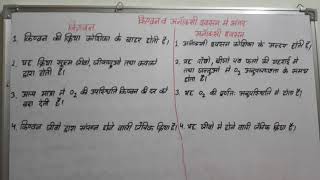 किण्वन व अनॉक्सी श्वसन में अंतर
किण्वन
अनॉक्सी श्वसन
1. किण्वन की क्रिया कोशिका के बाहर होती है।
1. अनॉक्सी श्वसन कोशिका के अन्दर होती है।
2. यह क्रिया सूक्ष्म जीवों, जीवाणुओं तथा कवकों
द्वारा होती है।
2. यह पौधों, बीजों एवं फलों की गहराई में
तथा जन्तुओं में O2 अनुपलब्धता के समय
होता है।
3. अल्प मात्रा में O2 की उपस्थिति किण्वन की दर को
बढ़ा देती है।
3. यह O2 की पूर्णतः अनुपस्थिति में होता है।
4. किण्वन जीवों द्वारा संपन्न होने वाली जैविक क्रिया है।
4. यह जीवों में होने वाली जैविक क्रिया है।